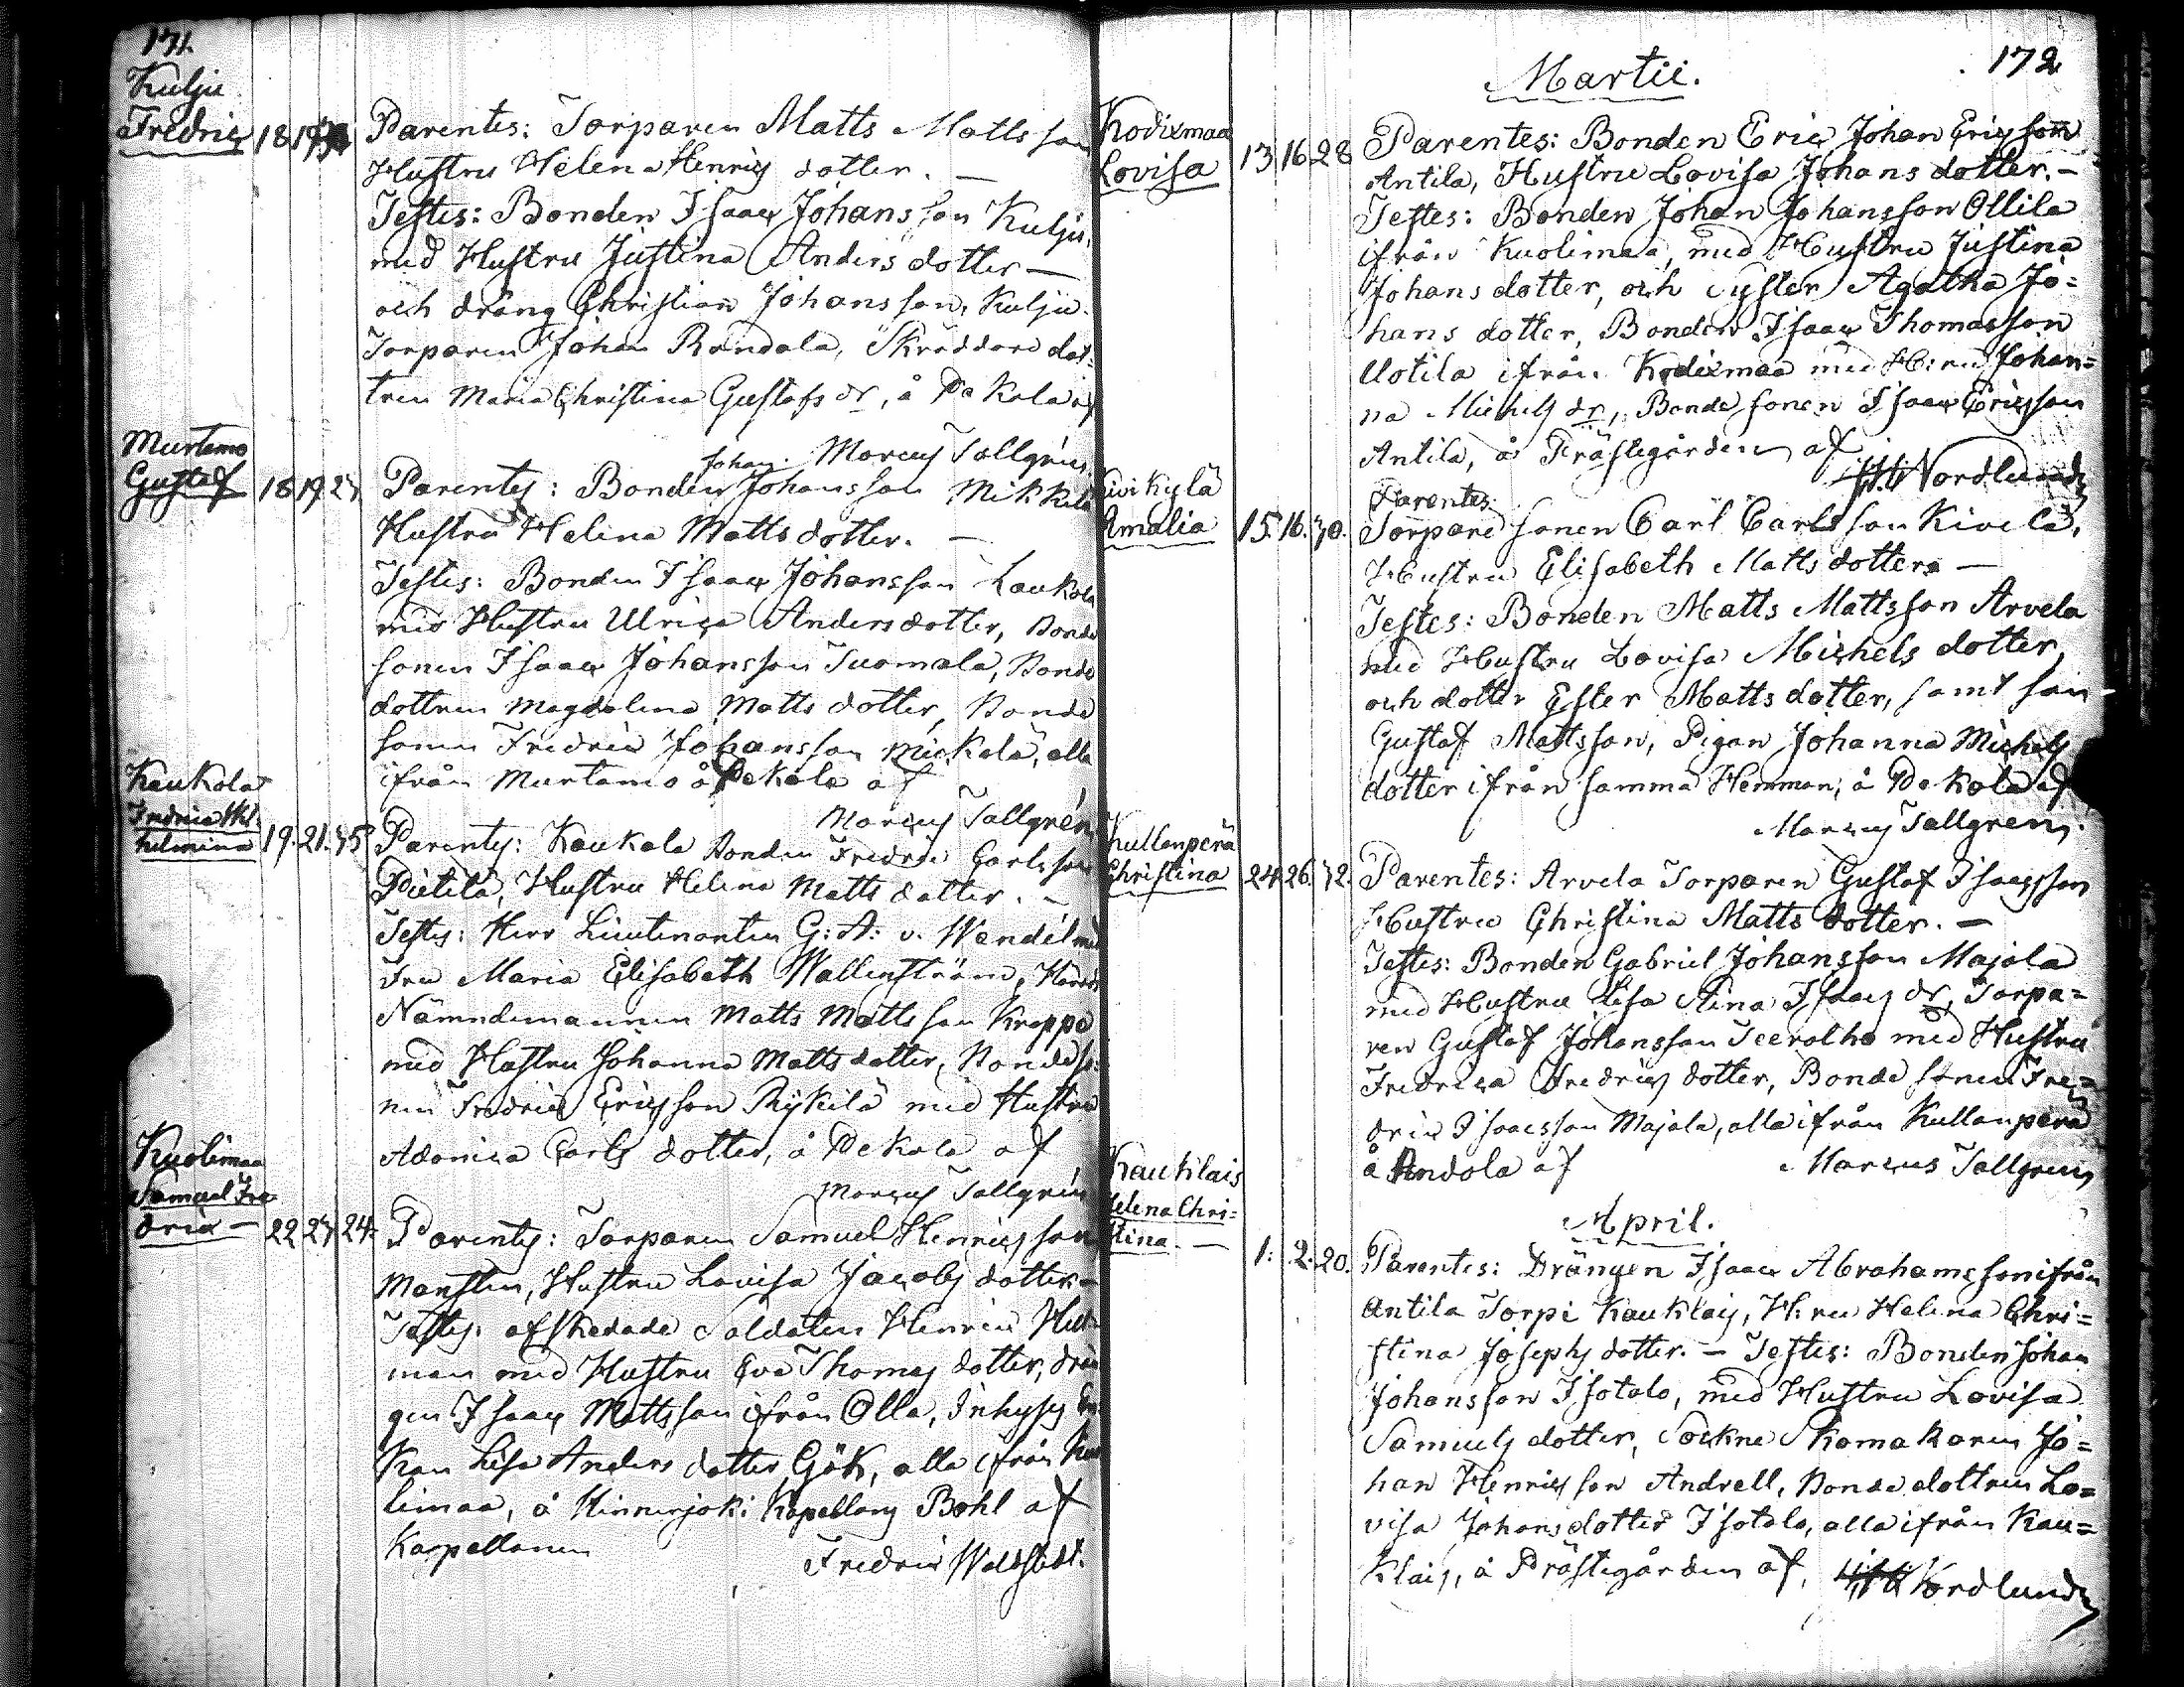 171.
Kulju
Fredric 18 19
Parentes: Torparen Matts Mattsson
Hustru Helena Henrics dotter. —
Testes: Bonden Isaac Johansson Kulju,
med Hustru Justina Anders dotter —
och dräng Christian Johansson, Kulju.
Torparen Johan Randala, Skräddare dot-
tren Maria Christina Gustafs dr, å Pekola af
Marcus Tallgrén
Murtamo
Gustaf 18 19 27
Johan
Parentes: Bonden Johansson Mikkilä
Hustru Helena Matts dotter. —
Testes: Bonden Isaac Johansson Laukola
med Hustru Ulrica Anders dotter, Bonde
sonen Isaac Johansson Tuomala, Bonde
dottren Magdalena Matts dotter, Bonde
sonen Fredric Johansson Mickola, alla
ifrån Murtamo å Pekola af
Marcus Tallgrén
Kaukola
Fredrica Wil-
helmina 19. 21. 35
Parentes: Kaukola Bonden Fredric Carlsson
Pietilä, Hustru Helena Matts dotter. —
Testes: Herr Lieutenanten G: A: v. Wendel med
Fru Maria Elisabeth Wallenström, Härads
Nämndemannen Matts Mattsson Knappa
med Hustru Johanna Matts dotter, Bondeso-
nen Fredric Ericsson Rykilä med Hustru
Adamina Carls dotter, å Pekola af
Marcus Tallgrén
Kuolimaa
Samuel Fre-
dric — 22 27 24
Parentes: Torparen Samuel Henricsson
Marsten, Hustru Lovisa Jacobs dotter —
Testes: afskedade Soldaten Henric
man med Hustru Eva Thomas dotter, drän
gen Isaac Mattsson ifrån Olla, Inhyses En-
kan Lisa Anders dotter Gök, alla ifrån Kuo
limaa, å Hinnerjoki Kapellans Bohl af
Kapellanen Fredric Waldstedt.
Martii.
172
Kodixmaa
Lovisa 13 16 28
Parentes: Bonden Eric Johan Ericsson
Antila, Hustru Lovisa Johans dotter. —
Testes: Bonden Johan Johansson Ollila
ifrån Kuolimaa, med Hustru Justina
Johans dotter, och syster Agatha Jo=
hans dotter, Bonden Isaac Thomasson
Uotila ifrån Kodixmaa med H:ru Johan=
na Michels dr, Bonde sonen Isaac Ericsson
Antila, å Prästegården af
Nordlund
Kivikylä
Amalia 15. 16. 30.
Parentes
Torpare sonen Carl Carlsson Kivelä,
Hustru Elisabeth Matts dotter —
Testes: Bonden Matts Mattsson Arvela
med Hustru Lovisa Michels dotter,
och dotter Ester Matts dotter, samt son
Gustaf Mattsson, Pigan Johanna Michels
dotter ifrån samma Hemman, å Pekola af
Marcus Tallgren.
Kullanperä
Christina 24 26. 32.
Parentes: Arvela Torparen Gustaf Isacsson
Hustru Christina Matts dotter. —
Testes: Bonden Gabriel Johansson Majala
med Hustru Lisa Stina Isaacs dr, Torpa=
ren Gustaf Johansson Teeralho med Hustru
Fredrica Fredrics dotter, Bonde sonen Fre=
dric Isaacsson Majala, alla ifrån Kullanperä
å Andola af Marcus Tallgren
April.
Kauklais
Helena Chri=
stina. — 1. 2. 20.
Parentes: Drängen Isaac Abrahamsson ifrån
Antila Torp i Kauklais, H:ru Helena Chri=
stina Josephs dotter. — Testes: Bonden Johan
Johansson Isotalo, med Hustru Lovisa
Samuels dotter, Sockne Skomakaren Jo=
han Henricsson Andrell, Bonde dottren Lo=
visa Johans dotter Isotalo, alla ifrån Kau=
klais, å Prästegården af, Nordlund